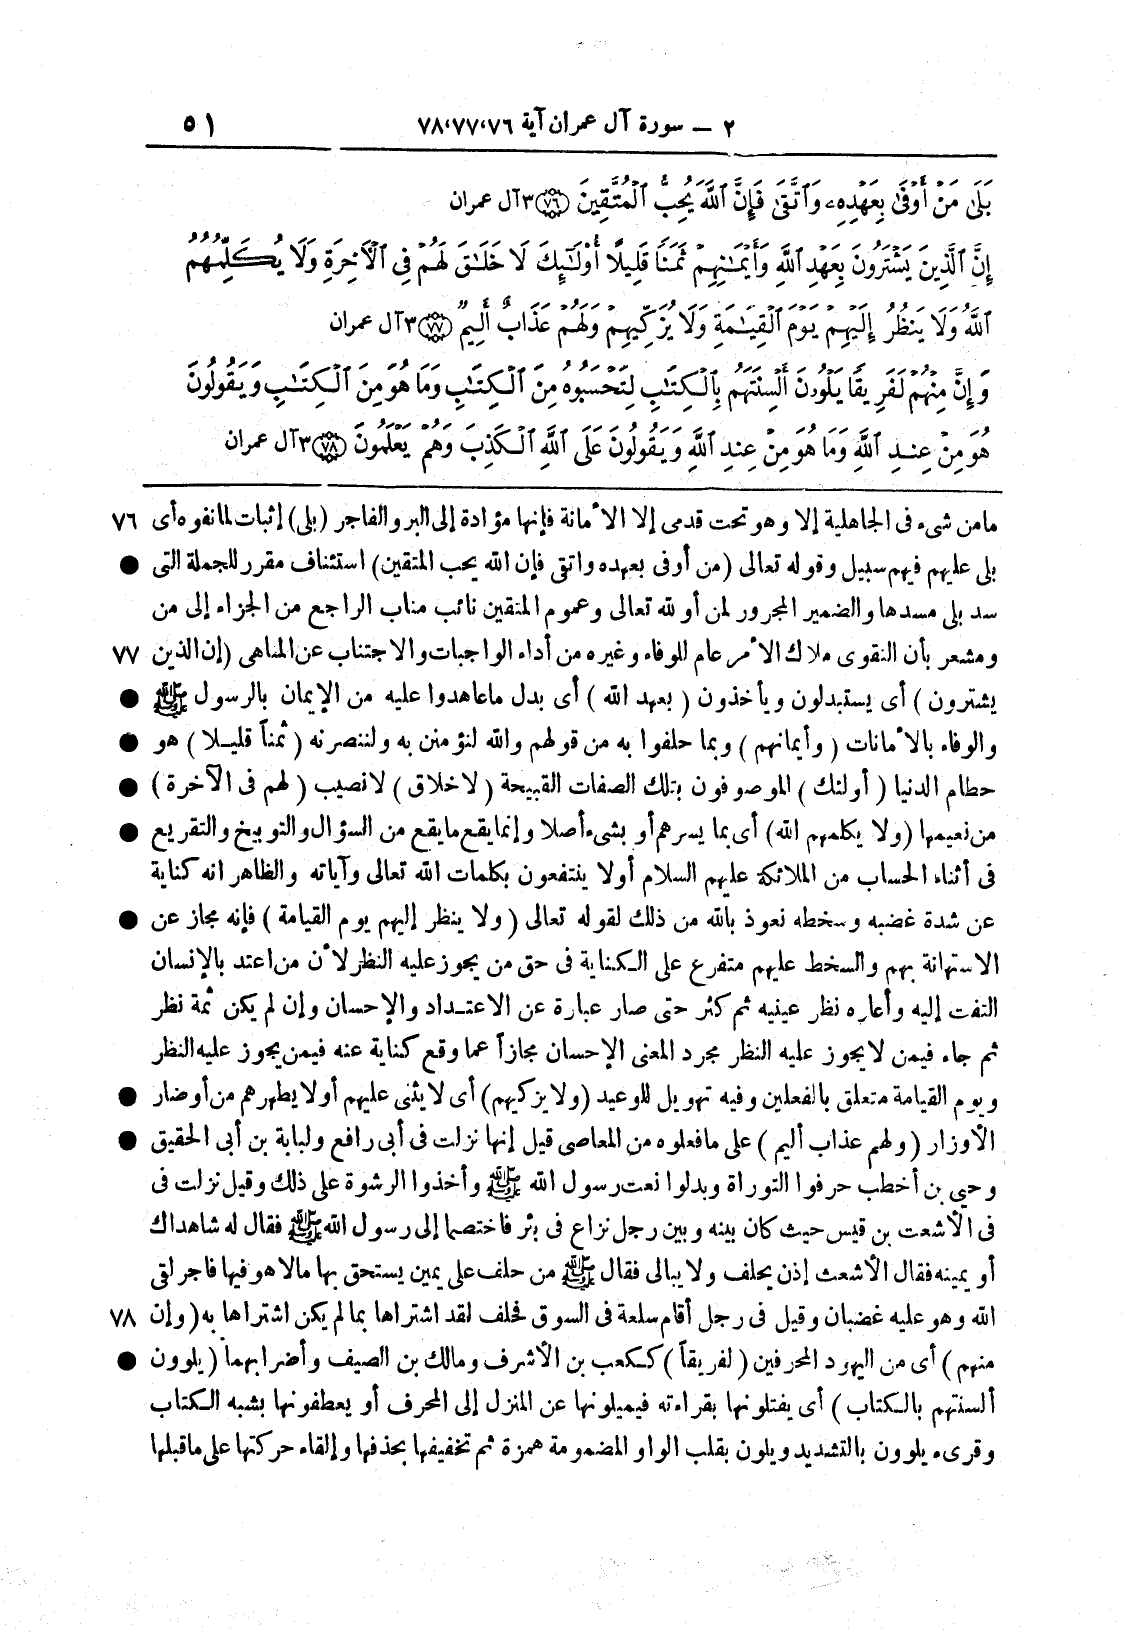 ٢ – سورة آل عمران آية ٧٨،٧٧،٧٦ ٥١
بَلَىٰ مَنْ أَوْفَىٰ بِعَهْدِهِۦ وَٱتَّقَىٰ فَإِنَّ ٱللَّهَ يُحِبُّ ٱلْمُتَّقِينَ ۝٧٦ ٣ آل عمران
إِنَّ ٱلَّذِينَ يَشْتَرُونَ بِعَهْدِ ٱللَّهِ وَأَيْمَـٰنِهِمْ ثَمَنًا قَلِيلًا أُوْلَـٰٓئِكَ لَا خَلَـٰقَ لَهُمْ فِى ٱلْأَخِرَةِ وَلَا يُكَلِّمُهُمُ
ٱللَّهُ وَلَا يَنظُرُ إِلَيْهِمْ يَوْمَ ٱلْقِيَـٰمَةِ وَلَا يُزَكِّيهِمْ وَلَهُمْ عَذَابٌ أَلِيمٌ ۝٧٧ ٣ آل عمران
وَإِنَّ مِنْهُمْ لَفَرِيقًا يَلْوُۥنَ أَلْسِنَتَهُم بِٱلْكِتَـٰبِ لِتَحْسَبُوهُ مِنَ ٱلْكِتَـٰبِ وَمَا هُوَ مِنَ ٱلْكِتَـٰبِ وَيَقُولُونَ
هُوَ مِنْ عِندِ ٱللَّهِ وَمَا هُوَ مِنْ عِندِ ٱللَّهِ وَيَقُولُونَ عَلَى ٱللَّهِ ٱلْكَذِبَ وَهُمْ يَعْلَمُونَ ۝٧٨ ٣ آل عمران
مامن شىء فى الجاهلية إلا وهو تحت قدمى إلا الأمانة فإنها مؤداة إلى البر والفاجر (بلى) إثبات لما نفوه أى ٧٦
بلى عليهم فيهم سبيل وقوله تعالى (من أوفى بعهده واتقى فإن الله يحب المتقين) استئناف مقرر للجملة التى ●
سد بلى مسدها والضمير المجرور لمن أو لله تعالى وعموم المتقين نائب مناب الراجع من الجزاء إلى من
ومشعر بأن التقوى ملاك الأمر عام للوفاء وغيره من أداء الواجبات والاجتناب عن المناهى (إن الذين ٧٧
يشترون ) أى يستبدلون ويأخذون ( بعهد الله ) أى بدل ماعاهدوا عليه من الإيمان بالرسول ﷺ ●
والوفاء بالأمانات ( وأيمانهم ) وبما حلفوا به من قولهم والله لنؤمنن به ولننصرنه ( ثمناً قليلا ) هو ●
حطام الدنيا ( أولئك ) الموصوفون بتلك الصفات القبيحة ( لاخلاق ) لانصيب ( لهم فى الآخرة ) ●
من نعيمها (ولا يكلمهم الله) أى بما يسرهم أو بشىء أصلا وإنما يقع ما يقع من السؤال والتوبيخ والتقريع ●
فى أثناء الحساب من الملائكة عليهم السلام أولا ينتفعون بكلمات الله تعالى وآياته والظاهر انه كناية
عن شدة غضبه وسخطه نعوذ بالله من ذلك لقوله تعالى ( ولا ينظر إليهم يوم القيامة ) فإنه مجاز عن ●
الاستهانة بهم والسخط عليهم متفرع على الكناية فى حق من يجوز عليه النظر لأن من اعتد بالإنسان
التفت إليه وأعاره نظر عينيه ثم كثر حتى صار عبارة عن الاعتداد والإحسان وإن لم يكن ثمة نظر
ثم جاء فيمن لا يجوز عليه النظر مجرد المعنى الإحسان مجازاً عما وقع كناية عنه فيمن يجوز عليه النظر
ويوم القيامة متعلق بالفعلين وفيه تهويل للوعيد (ولا يزكيهم) أى لا يثنى عليهم أولا يطهرهم من أوضار ●
الأوزار ( ولهم عذاب أليم ) على مافعلوه من المعاصى قيل إنها نزلت فى أبى رافع ولبابة بن أبى الحقيق ●
وحيى بن أخطب حرفوا التوراة وبدلوا نعت رسول الله ﷺ وأخذوا الرشوة على ذلك وقيل نزلت فى
فى الأشعث بن قيس حيث كان بينه وبين رجل نزاع فى بئر فاختصما إلى رسول الله ﷺ فقال له شاهداك
أو يمينه فقال الأشعث إذن يحلف ولا يبالى فقال ﷺ من حلف على يمين يستحق بها مالا هو فيها فاجر لقى
الله وهو عليه غضبان وقيل فى رجل أقام سلعة فى السوق فحلف لقد اشتراها بمالم يكن اشتراها به ( وإن ٧٨
منهم ) أى من اليهود المحرفين ( لفريقاً ) ككعب بن الأشرف ومالك بن الصيف وأضرابهما ( يلوون ●
ألسنتهم بالكتاب ) أى يفتلونها بقراءته فيميلونها عن المنزل إلى المحرف أو يعطفونها بشبه الكتاب
وقرىء يلوون بالتشديد ويلون بقلب الواو المضمومة همزة ثم تخفيفها بحذفها وإلقاء حركتها على ماقبلها